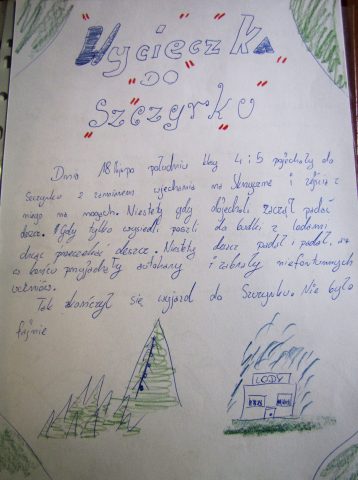 Wycieczka
DO
Szczyrku
Dnia 18 lipca po południu klasy 4 i 5 pojechały do
Szczyrku z zamiarem wjechania na Skrzyczne i zejścia z
niego na nogach. Niestety gdy dojechali zaczął padać
deszcz. Gdy tylko wysiedli poszli do budki z lodami
chcąc przeczekać deszcz. Niestety deszcz padał i padał, aż
w końcu przyjechały autokary i zabrały niefortunnych
uczniów.
Tak skończył się wyjazd do Szczyrku. Nie było
fajnie
LODY